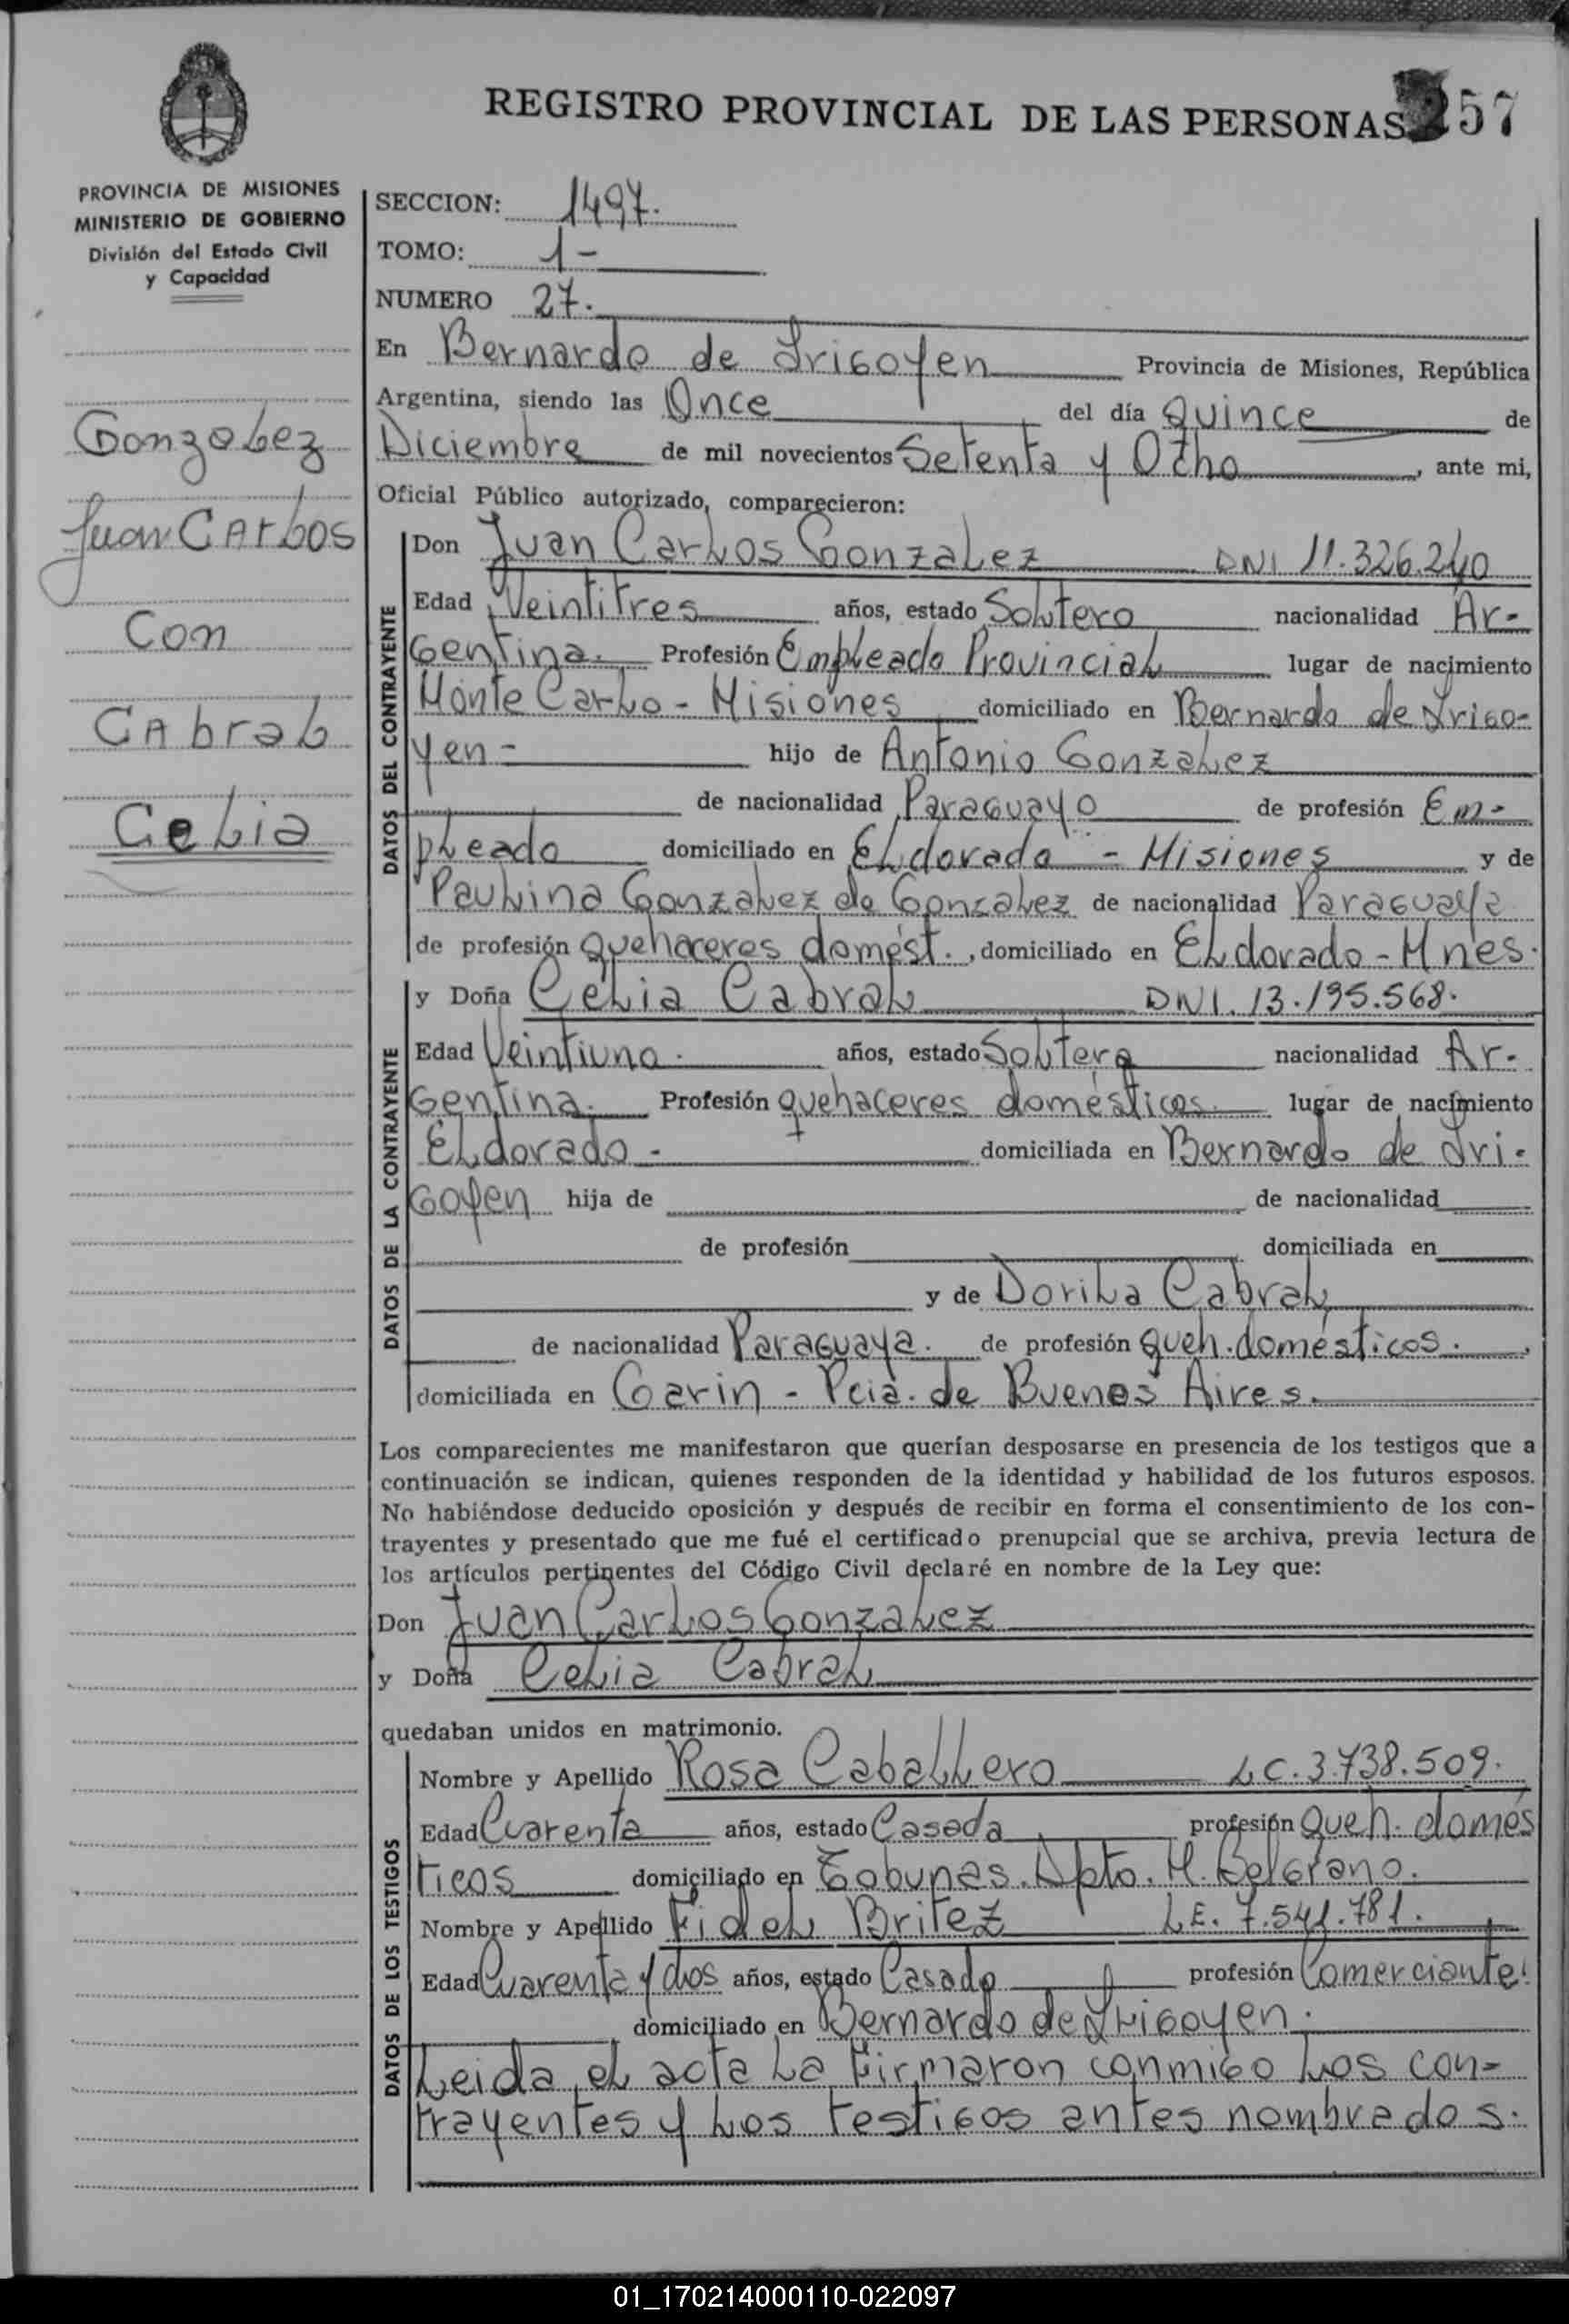 REGISTRO PROVINCIAL DE LAS PERSONAS 57
PROVINCIA DE MISIONES
MINISTERIO DE GOBIERNO
División del Estado Civil
y Capacidad
Gonzalez
Juan CArlos
Con
CAbral
Celia
SECCION: 1497.
TOMO: 1-
NUMERO 27.
En Bernardo de Irigoyen Provincia de Misiones, República
Argentina, siendo las Once del día Quince de
Diciembre de mil novecientos Setenta y Ocho, ante mi,
Oficial Público autorizado, comparecieron:
DATOS DEL CONTRAYENTE
Don Juan Carlos Gonzalez DNI 11.326.240
Edad Veintitres años, estado Soltero nacionalidad Ar-
gentina. Profesión Empleado Provincial lugar de nacimiento
Monte Carlo - Misiones domiciliado en Bernardo de Irigo-
yen - hijo de Antonio Gonzalez
de nacionalidad Paraguayo de profesión Em-
pleado domiciliado en Eldorado - Misiones y de
Paulina Gonzalez de Gonzalez de nacionalidad Paraguaya
de profesión quehaceres domést., domiciliado en Eldorado - Mnes.
DATOS DE LA CONTRAYENTE
y Doña Celia Cabral DNI. 13.195.568.
Edad Veintiuno. años, estado Soltera nacionalidad Ar-
gentina. Profesión quehaceres domésticos. lugar de nacimiento
Eldorado - domiciliada en Bernardo de Iri-
goyen hija de de nacionalidad
de profesión domiciliada en
y de Dorila Cabral
de nacionalidad Paraguaya. de profesión queh. domésticos.,
domiciliada en Garin - Pcia. de Buenos Aires.
Los comparecientes me manifestaron que querían desposarse en presencia de los testigos que a
continuación se indican, quienes responden de la identidad y habilidad de los futuros esposos.
No habiéndose deducido oposición y después de recibir en forma el consentimiento de los con-
trayentes y presentado que me fué el certificado prenupcial que se archiva, previa lectura de
los artículos pertinentes del Código Civil declaré en nombre de la Ley que:
Don Juan Carlos Gonzalez
y Doña Celia Cabral
quedaban unidos en matrimonio.
DATOS DE LOS TESTIGOS
Nombre y Apellido Rosa Caballero LC. 3.738.509.
Edad Cuarenta años, estado Casada profesión Queh. domés
ticos domiciliado en Tobunas. Dpto. M. Belgrano.
Nombre y Apellido Fidel Britez LE. 7.541.781.
Edad Cuarenta y dos años, estado Casado profesión Comerciante.
domiciliado en Bernardo de Irigoyen.
Leida el acta la firmaron conmigo los con-
trayentes y los testigos antes nombrados.
01_170214000110-022097